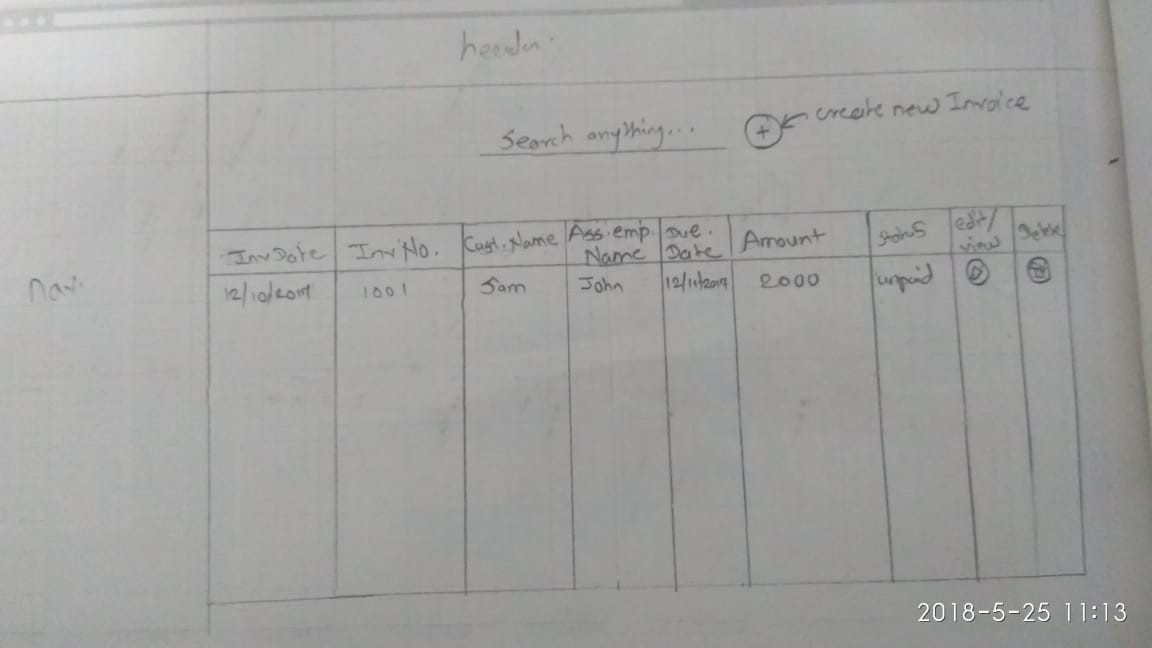 header.
Search anything...
+
create new Invoice
nav.
Inv Date
Inv No.
Cust. Name
Ass. emp.
Name
Due.
Date
Amount
edit/
view
12/10/2017
1001
Sam
John
12/11/2017
2000
unpaid
2018-5-25 11:13